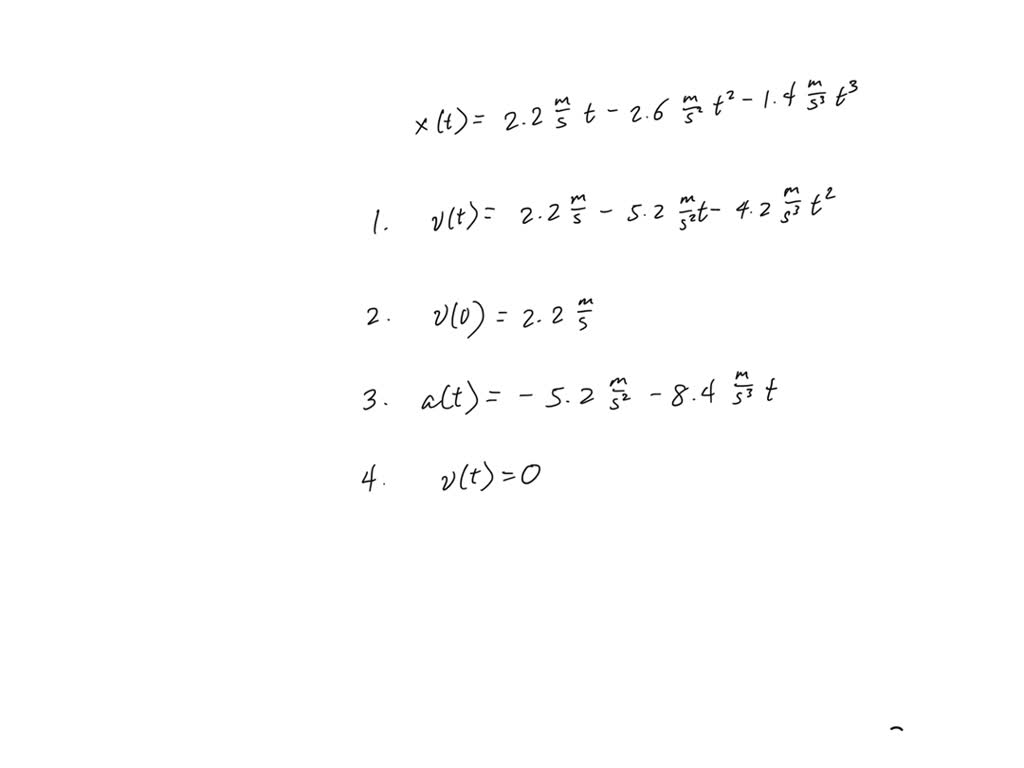 x(t) = 2.2 m/s t - 2.6 m/s² t² - 1.4 m/s³ t³
1. v(t) = 2.2 m/s - 5.2 m/s² t - 4.2 m/s³ t²
2. v(0) = 2.2 m/s
3. a(t) = - 5.2 m/s² - 8.4 m/s³ t
4. v(t) = 0